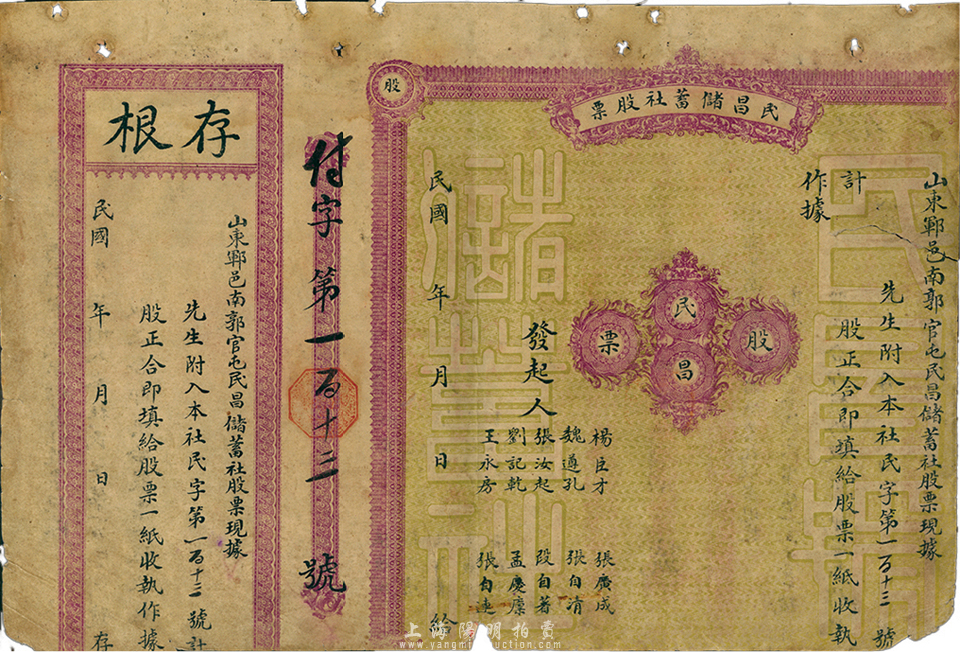 民昌儲蓄社股票
股
山東鄆邑南郭官屯民昌儲蓄社股票現據
先生附入本社民字第一百十三號
計
股正合即填給股票一紙收執
作據
民
股
票
昌
發起人
楊巨才
魏遵孔
張汝起
劉記乾
王永房
張廣成
張自清
段自著
孟慶廉
張自連
民國 年 月 日 給
付字第一百十三號
存根
山東鄆邑南郭官屯民昌儲蓄社股票現據
先生附入本社民字第一百十三號計
股正合即填給股票一紙收執作據
民國 年 月 日 存
民昌股票
儲蓄社
上海陽明拍賣